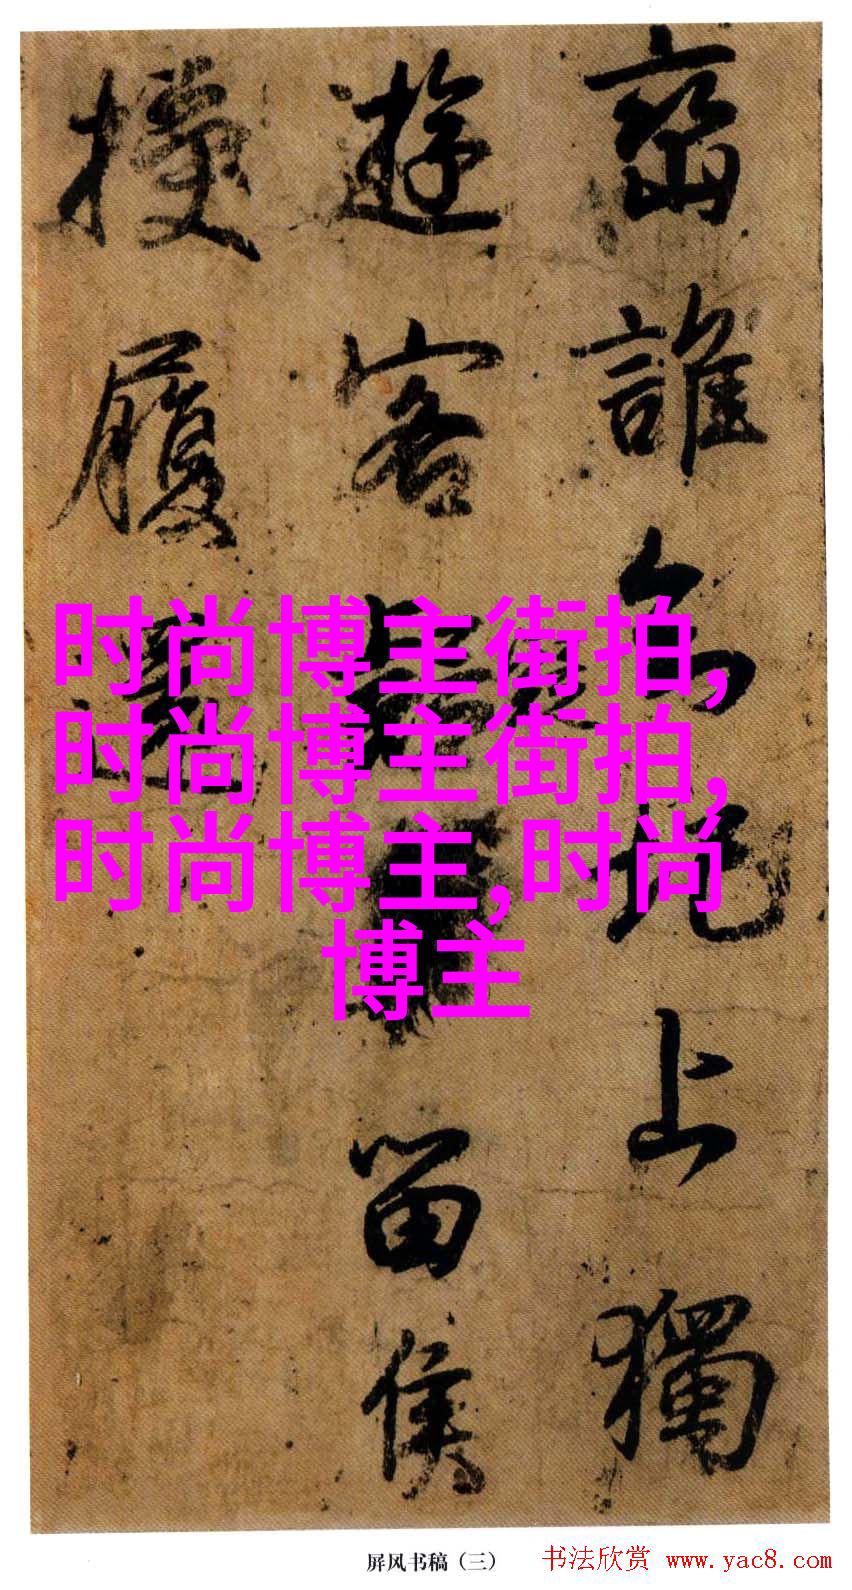 峦誰地上獨
遊客留侯
履
时尚博主街拍,
时尚博主街拍,
时尚博主,时尚
博主
屏风书稿（三）
书法欣赏 www.yac8.com